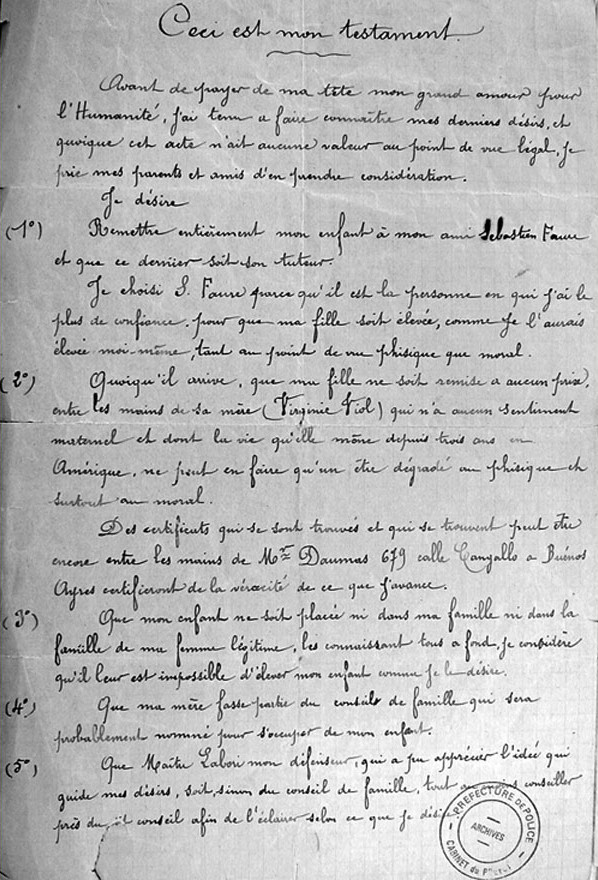 Ceci est mon testament.
Avant de payer de ma tête mon grand amour pour
l'Humanité, j'ai tenu a faire connaître mes derniers désirs, et
quoique cet acte n'ait aucune valeur au point de vue légal, je
prie mes parents et amis d'en prendre considération.
Je désire
(1°) Remettre entièrement mon enfant à mon ami Sébastien Faure
et que ce dernier soit son tuteur.
Je choisi S. Faure parce qu'il est la personne en qui j'ai le
plus de confiance. pour que ma fille soit élevée, comme je l'aurais
élevée moi-même, tant au point de vue phisique que moral.
(2°) Quoiqu'il arrive, que ma fille ne soit remise a aucun prix,
entre les mains de sa mère (Virginie Viol) qui n'a aucun sentiment
maternel et dont la vie qu'elle mène depuis trois ans en
Amérique, ne peut en faire qu'un être dégradé au phisique et
surtout au moral.
Des certificats qui se sont trouvés et qui se trouvent peut être
encore entre les mains de Mr Daumas 679 calle Cangallo a Buénos
Ayres certifieront de la véracité de ce que j'avance.
(3°) Que mon enfant ne soit placée ni dans ma famille ni dans la
famille de ma femme légitime, les connaissant tous a fond, je considère
qu'il leur est impossible d'élever mon enfant comme je le désire.
(4°) Que ma mère fasse partie du conseils de famille qui sera
probablement nommé pour s'occuper de mon enfant.
(5°) Que Maître Labori mon défenseur, qui a pu apprécier l'idée qui
guide mes désirs, soit, sinon du conseil de famille, tout au moins conseiller
près du dit conseil afin de l'éclairer selon ce que je désire
PREFECTURE DE POLICE
ARCHIVES
CABINET du PREFET